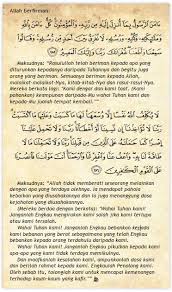 Allah berfirman:
ءَامَنَ ٱلرَّسُولُ بِمَآ أُنزِلَ إِلَيْهِ مِن رَّبِّهِۦ وَٱلْمُؤْمِنُونَ كُلٌّ ءَامَنَ
بِٱللَّهِ وَمَلَٰٓئِكَتِهِۦ وَكُتُبِهِۦ وَرُسُلِهِۦ لَا نُفَرِّقُ بَيْنَ أَحَدٍ مِّن رُّسُلِهِۦ وَقَالُوا۟
سَمِعْنَا وَأَطَعْنَا غُفْرَانَكَ رَبَّنَا وَإِلَيْكَ ٱلْمَصِيرُ
Maksudnya: "Rasulullah telah beriman kepada apa yang
diturunkan kepadanya daripada Tuhannya dan begitu juga
orang yang beriman. Semuanya beriman kepada Allah,
malaikat-malaikat-Nya, kitab-kitab-Nya dan rasul-rasul-Nya.
Mereka berkata lagi: "Kami dengar dan kami taat. (Kami
pohonkan) keampunan daripada-Mu wahai Tuhan kami dan
kepada-Mu jualah tempat kembali."
لَا يُكَلِّفُ ٱللَّهُ نَفْسًا إِلَّا وُسْعَهَا لَهَا مَا كَسَبَتْ وَعَلَيْهَا مَا
ٱكْتَسَبَتْ رَبَّنَا لَا تُؤَاخِذْنَآ إِن نَّسِينَآ أَوْ أَخْطَأْنَا رَبَّنَا وَلَا
تَحْمِلْ عَلَيْنَآ إِصْرًا كَمَا حَمَلْتَهُۥ عَلَى ٱلَّذِينَ مِن قَبْلِنَا رَبَّنَا
وَلَا تُحَمِّلْنَا مَا لَا طَاقَةَ لَنَا بِهِۦ وَٱعْفُ عَنَّا وَٱغْفِرْ لَنَا وَٱرْحَمْنَآ أَنتَ مَوْلَىٰنَا فَٱنصُرْنَا
عَلَى ٱلْقَوْمِ ٱلْكَٰفِرِينَ
Maksudnya: "Allah tidak membebani seseorang melainkan
dengan apa yang terdaya olehnya. Ia mendapat pahala
kebaikan yang diusahakannya dan ia juga menanggung dosa
kejahatan yang diusahakannya.
(Mereka berdoa dengan berkata): "Wahai Tuhan kami!
Janganlah Engkau mengirakan kami salah jika kami terlupa
atau kami tersalah.
Wahai Tuhan kami! Janganlah Engkau bebankan kepada
kami bebanan yang berat sebagaimana yang telah Engkau
bebankan kepada orang terdahulu daripada kami.
Wahai Tuhan kami! Janganlah Engkau pikulkan kepada kami
apa yang kami tidak terdaya memikulnya.
Dan maafkanlah kesalahan kami, ampunkanlah dosa kami
dan berilah rahmat kepada kami. Engkaulah Penolong kami.
Oleh sebab itu, tolonglah kami untuk mencapai kemenangan
terhadap kaum-kaum yang kafir."